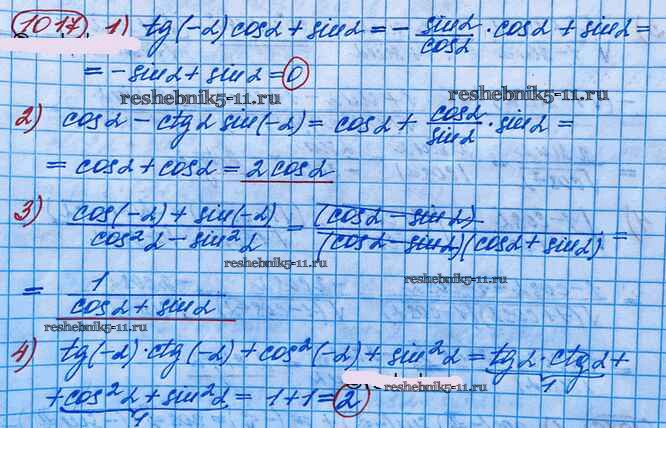 1017 1) tg(-α) cosα + sinα = - sinα/cosα · cosα + sinα =
= - sinα + sinα = 0
reshebnik5-11.ru reshebnik5-11.ru
2) cosα - ctgα sin(-α) = cosα + cosα/sinα · sinα =
= cosα + cosα = 2cosα
3) (cos(-α) + sin(-α))/(cos²α - sin²α) = (cosα - sinα)/((cosα - sinα)(cosα + sinα)) =
reshebnik5-11.ru reshebnik5-11.ru
= 1/(cosα + sinα)
reshebnik5-11.ru
4) tg(-α)·ctg(-α) + cos²(-α) + sin²α = tgα · ctgα +
1
+ cos²α + sin²α = 1+1 = 2
1